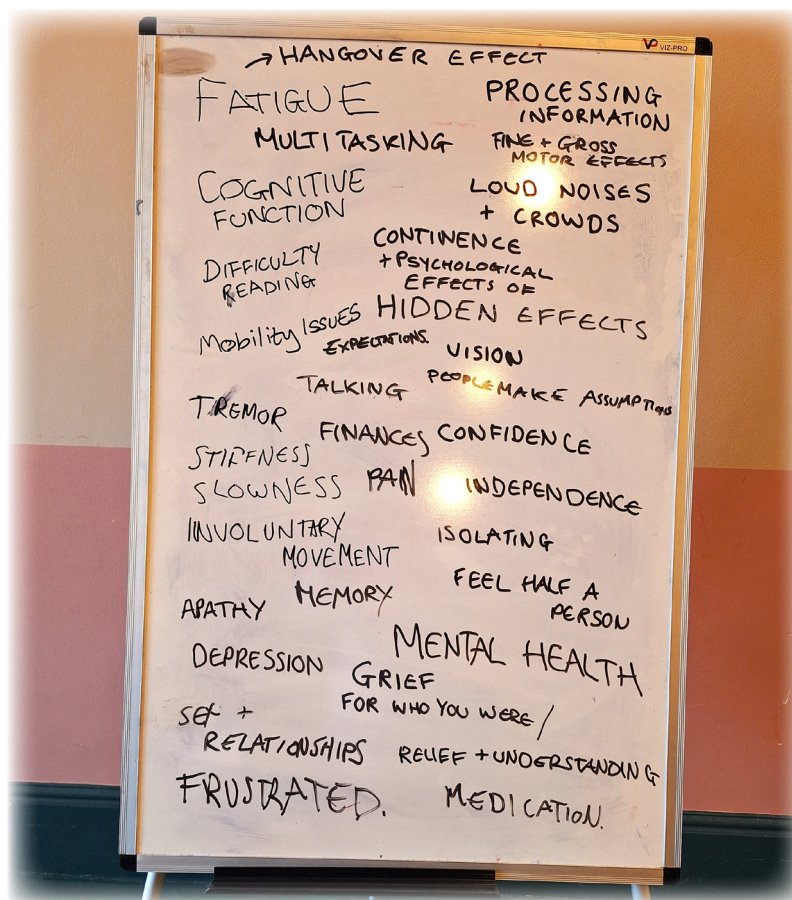 VP VIZ-PRO
→ HANGOVER EFFECT
FATIGUE
PROCESSING
INFORMATION
MULTITASKING
FINE + GROSS
MOTOR EFFECTS
COGNITIVE
FUNCTION
LOUD NOISES
+ CROWDS
DIFFICULTY
READING
CONTINENCE
+ PSYCHOLOGICAL
EFFECTS OF
HIDDEN EFFECTS
Mobility ISSUES
EXPECTATIONS.
VISION
TALKING
PEOPLE MAKE ASSUMPTIONS
TREMOR
FINANCES
CONFIDENCE
STIFFNESS
SLOWNESS
PAIN
INDEPENDENCE
INVOLUNTARY
MOVEMENT
ISOLATING
MEMORY
FEEL HALF A
PERSON
APATHY
MENTAL HEALTH
DEPRESSION
GRIEF
FOR WHO YOU WERE /
SEX +
RELATIONSHIPS
RELIEF + UNDERSTANDING
FRUSTRATED.
MEDICATION.